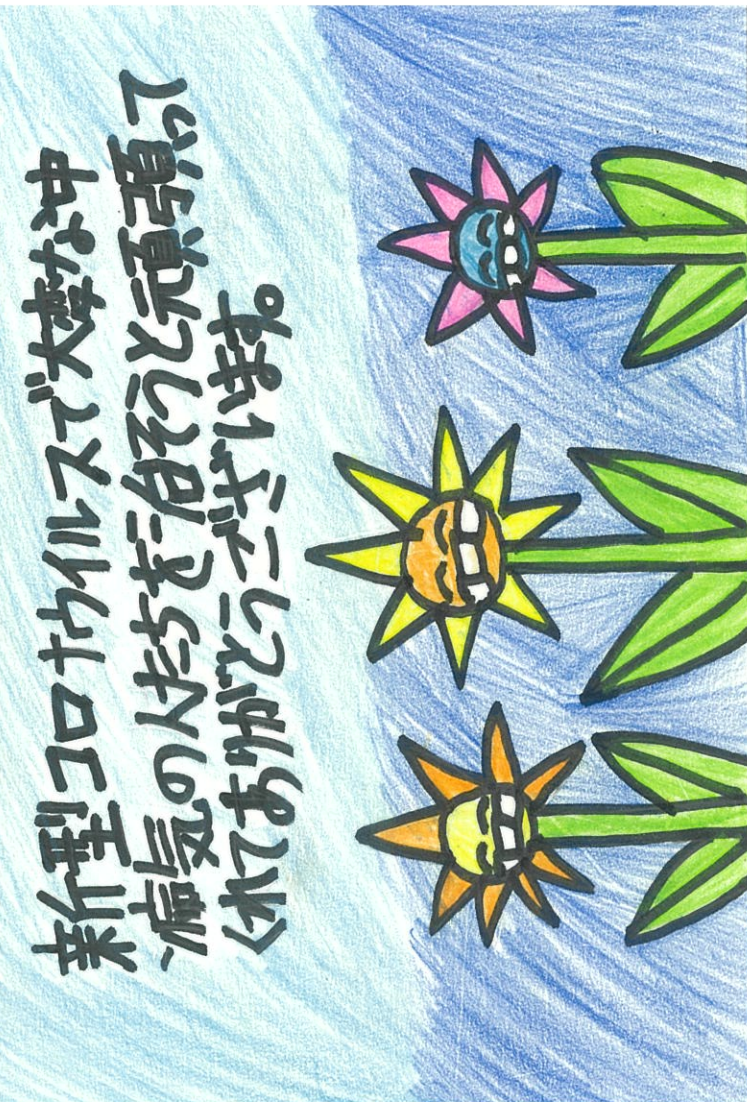 新型コロナウイルスで大変な中
病気の人たちを治そうと頑張って
くれてありがとうございます。